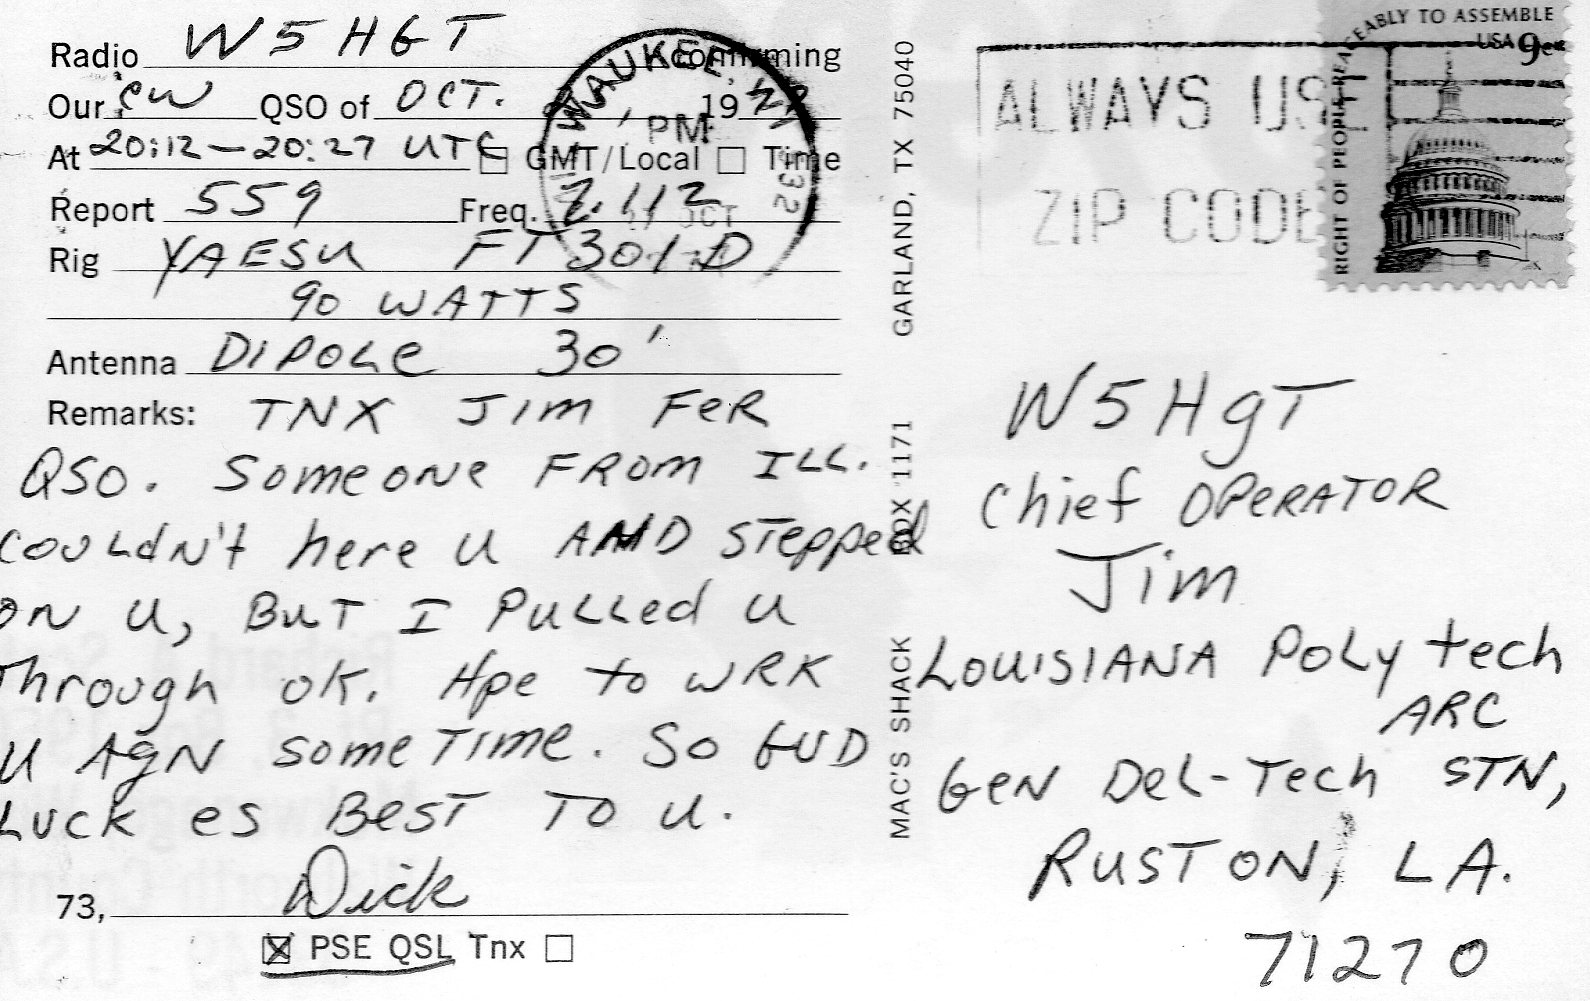 Radio W5HGT confirming
Our CW QSO of OCT. 19
At 20:12 – 20:27 UTC ☐ GMT/Local ☐ Time
Report 559 Freq. 7.112
Rig YAESU FT 301 D
90 WATTS
Antenna DIPOLE 30'
Remarks: TNX JIM FER
QSO. SOMEONE FROM ILL.
COULDN't here U AND STepped
ON U, BUT I PULLed U
Through OK. Hpe to WRK
U AgN some TIME. SO GUD
LUCK es BEST TO U.
73, Dick
☒ PSE QSL Tnx ☐
WAUKEE, WI
PM
OCT
532
MAC'S SHACK BOX 1171 GARLAND, TX 75040
ALWAYS USE
ZIP CODE
RIGHT OF PEOPLE PEACEABLY TO ASSEMBLE
USA 9c
W5HgT
Chief OPeRATOR
Jim
LOUISIANA POLy tech
ARC
GeN DeL-Tech STN,
RUSTON, LA.
71270